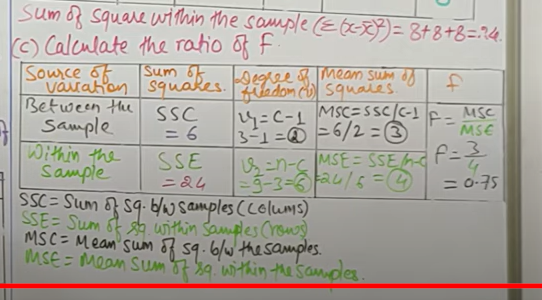 Sum of square within the sample (Σ(x-x̄)²) = 8+8+8=24.
(c) Calculate the ratio of F.
Source of variation | Sum of squares. | Degree of freedom(ν) | Mean sum of squares. | F
Between the Sample | SSC = 6 | ν₁=C-1 3-1=2 | MSC=SSC/C-1 =6/2=3 | F= MSC/MSE
Within the Sample | SSE =24 | ν₂=n-c =9-3=6 | MSE=SSE/n-c =24/6=4 | F=3/4 =0.75
SSC=Sum of sq. b/w samples (Colums)
SSE=Sum of sq. within Samples (rows)
MSC=Mean sum of sq. b/w the samples.
MSE=Mean Sum of sq. within the Samples.